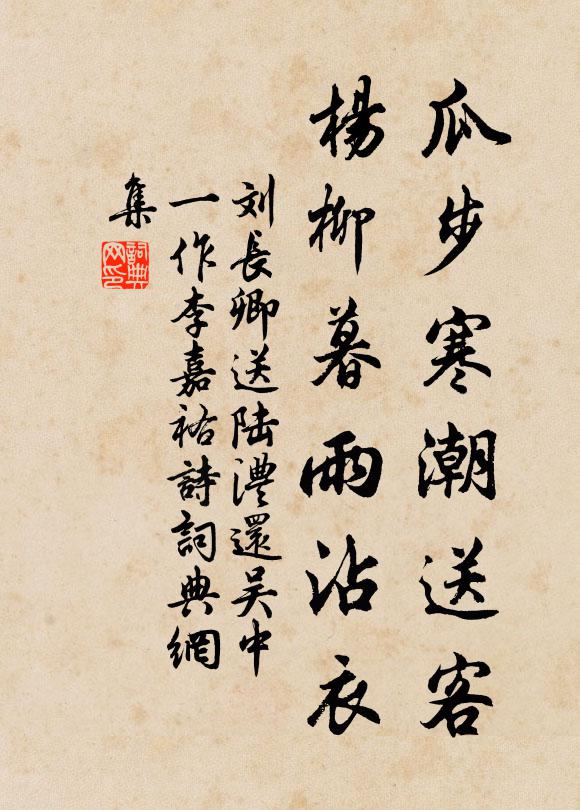 瓜步寒潮送客
楊柳暮雨沾衣
刘長卿送陸澧還吴中
一作李嘉祐詩詞典網
集
詞典網印